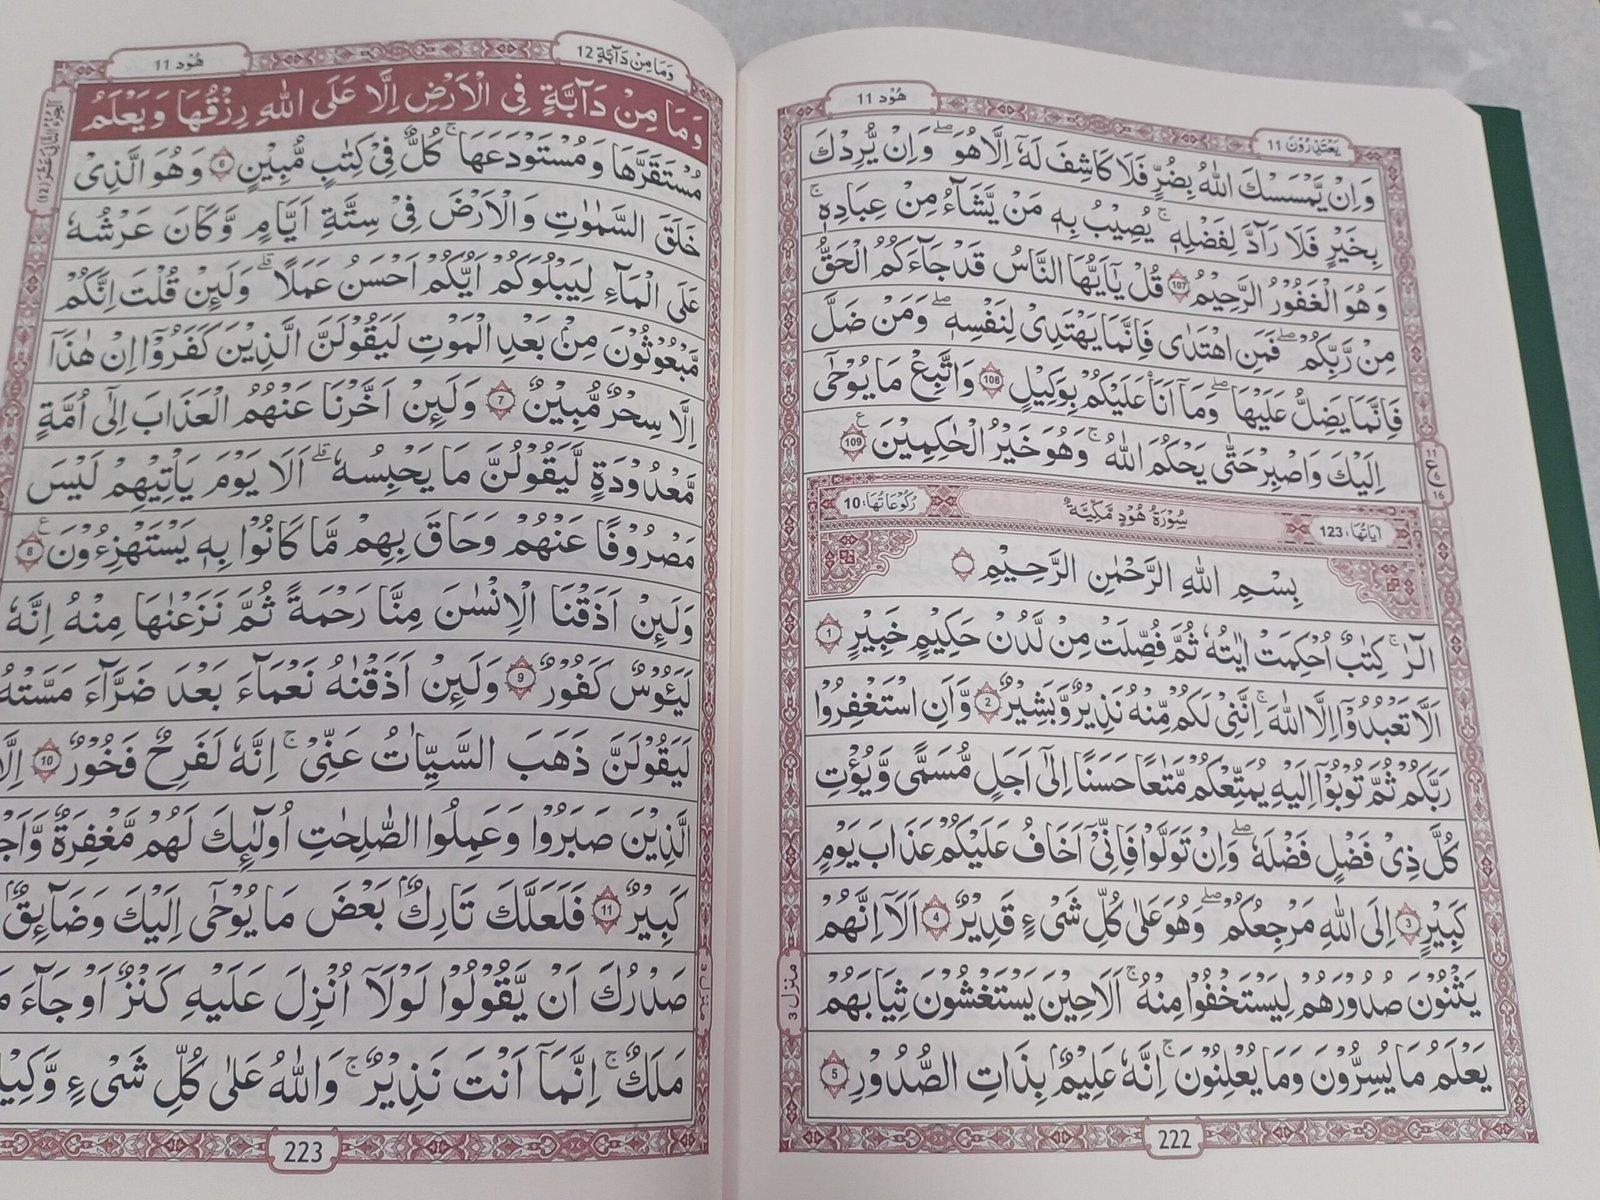 هُوْد 11
يَعْتَذِرُوْنَ 11
وَاِنْ يَّمْسَسْكَ اللّٰهُ بِضُرٍّ فَلَا كَاشِفَ لَهٗۤ اِلَّا هُوَ ۖ وَاِنْ يُّرِدْكَ
بِخَيْرٍ فَلَا رَآدَّ لِفَضْلِهٖ ۚ يُصِيْبُ بِهٖ مَنْ يَّشَآءُ مِنْ عِبَادِهٖ ۚ
وَهُوَ الْغَفُوْرُ الرَّحِيْمُ 107 قُلْ يٰۤاَيُّهَا النَّاسُ قَدْ جَآءَكُمُ الْحَقُّ
مِنْ رَّبِّكُمْ ۖ فَمَنِ اهْتَدٰى فَاِنَّمَا يَهْتَدِىْ لِنَفْسِهٖ ۖ وَمَنْ ضَلَّ
فَاِنَّمَا يَضِلُّ عَلَيْهَا ۖ وَمَاۤ اَنَا عَلَيْكُمْ بِوَكِيْلٍ 108 وَاتَّبِعْ مَا يُوْحٰۤى
اِلَيْكَ وَاصْبِرْ حَتّٰى يَحْكُمَ اللّٰهُ ۚ وَهُوَ خَيْرُ الْحٰكِمِيْنَ 109
11
ع 6
16
اٰيَاتُهَا: 123
سُوْرَةُ هُوْدٍ مَّكِّيَّةٌ
رُكُوْعَاتُهَا: 10
بِسْمِ اللّٰهِ الرَّحْمٰنِ الرَّحِيْمِ
الٓرٰ ۚ كِتٰبٌ اُحْكِمَتْ اٰيٰتُهٗ ثُمَّ فُصِّلَتْ مِنْ لَّدُنْ حَكِيْمٍ خَبِيْرٍ 1
اَلَّا تَعْبُدُوْۤا اِلَّا اللّٰهَ ۚ اِنَّنِىْ لَكُمْ مِّنْهُ نَذِيْرٌ وَّبَشِيْرٌ 2 وَّاَنِ اسْتَغْفِرُوْا
رَبَّكُمْ ثُمَّ تُوْبُوْۤا اِلَيْهِ يُمَتِّعْكُمْ مَّتَاعًا حَسَنًا اِلٰۤى اَجَلٍ مُّسَمًّى وَّيُؤْتِ
كُلَّ ذِىْ فَضْلٍ فَضْلَهٗ ۖ وَاِنْ تَوَلَّوْا فَاِنِّىْۤ اَخَافُ عَلَيْكُمْ عَذَابَ يَوْمٍ
كَبِيْرٍ 3 اِلَى اللّٰهِ مَرْجِعُكُمْ ۖ وَهُوَ عَلٰى كُلِّ شَىْءٍ قَدِيْرٌ 4 اَلَاۤ اِنَّهُمْ
يَثْنُوْنَ صُدُوْرَهُمْ لِيَسْتَخْفُوْا مِنْهُ ۚ اَلَا حِيْنَ يَسْتَغْشُوْنَ ثِيَابَهُمْ
يَعْلَمُ مَا يُسِرُّوْنَ وَمَا يُعْلِنُوْنَ ۚ اِنَّهٗ عَلِيْمٌۢ بِذَاتِ الصُّدُوْرِ 5
منزل 3
222
وَمَا مِنْ دَآبَّةٍ 12
هُوْد 11
الجزء الثانی عشر (12)
وَمَا مِنْ دَآبَّةٍ فِى الْاَرْضِ اِلَّا عَلَى اللّٰهِ رِزْقُهَا وَيَعْلَمُ
مُسْتَقَرَّهَا وَمُسْتَوْدَعَهَا ۚ كُلٌّ فِىْ كِتٰبٍ مُّبِيْنٍ 6 وَهُوَ الَّذِىْ
خَلَقَ السَّمٰوٰتِ وَالْاَرْضَ فِىْ سِتَّةِ اَيَّامٍ وَّكَانَ عَرْشُهٗ
عَلَى الْمَآءِ لِيَبْلُوَكُمْ اَيُّكُمْ اَحْسَنُ عَمَلًا ۗ وَلَئِنْ قُلْتَ اِنَّكُمْ
مَّبْعُوْثُوْنَ مِنْۢ بَعْدِ الْمَوْتِ لَيَقُوْلَنَّ الَّذِيْنَ كَفَرُوْۤا اِنْ هٰذَاۤ
اِلَّا سِحْرٌ مُّبِيْنٌ 7 وَلَئِنْ اَخَّرْنَا عَنْهُمُ الْعَذَابَ اِلٰۤى اُمَّةٍ
مَّعْدُوْدَةٍ لَّيَقُوْلُنَّ مَا يَحْبِسُهٗ ۗ اَلَا يَوْمَ يَاْتِيْهِمْ لَيْسَ
مَصْرُوْفًا عَنْهُمْ وَحَاقَ بِهِمْ مَّا كَانُوْا بِهٖ يَسْتَهْزِءُوْنَ 8
وَلَئِنْ اَذَقْنَا الْاِنْسٰنَ مِنَّا رَحْمَةً ثُمَّ نَزَعْنٰهَا مِنْهُ اِنَّهٗ
لَيَئُوْسٌ كَفُوْرٌ 9 وَلَئِنْ اَذَقْنٰهُ نَعْمَآءَ بَعْدَ ضَرَّآءَ مَسَّتْهُ
لَيَقُوْلَنَّ ذَهَبَ السَّيِّاٰتُ عَنِّىْ ۚ اِنَّهٗ لَفَرِحٌ فَخُوْرٌ 10 اِلَّا
الَّذِيْنَ صَبَرُوْا وَعَمِلُوا الصّٰلِحٰتِ اُولٰٓئِكَ لَهُمْ مَّغْفِرَةٌ
كَبِيْرٌ 11 فَلَعَلَّكَ تَارِكٌۢ بَعْضَ مَا يُوْحٰۤى اِلَيْكَ وَضَآئِقٌۢ
صَدْرُكَ اَنْ يَّقُوْلُوْا لَوْلَاۤ اُنْزِلَ عَلَيْهِ كَنْزٌ اَوْ جَآءَ
مَلَكٌ ۚ اِنَّمَاۤ اَنْتَ نَذِيْرٌ ۚ وَاللّٰهُ عَلٰى كُلِّ شَىْءٍ
منزل 3
223